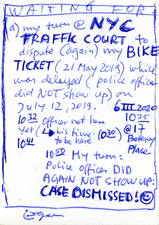 WAITING FOR
a) my turn @ NYC
TRAFFIC COURT to
dispute (again) my BIKE
TICKET (21 May 2019) which
was delayed (police officer
did NOT SHOW up) on
July 12, 2019.
6 III 2020
10 32 Officer not here
10 25
yet (his time: 10 30
@ 17
to be here)
Battery
10 41
Place
10 50 My turn:
Police officer DID
AGAIN NOT SHOW UP:
CASE DISMISSED!